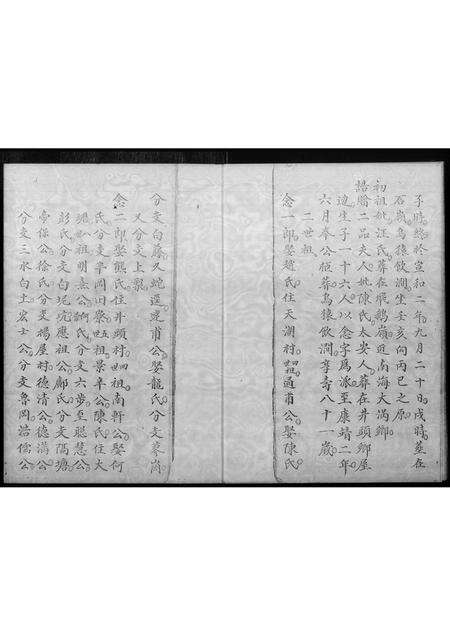 子時終於宣和二年九月二十日戌時塟在
石嶺烏猿飲澗坐壬亥向丙巳之原
初祖妣汪氏葬在飛鵝嶺通南海大滿鄉
誥贈二品夫人妣陳氏太安人葬在井頭鄉屋
邊生子一十六人以念字爲派至康靖二年
六月奉公柩葬烏猿飲澗享壽八十一歲
二世祖
念一郎娶趙氏住天湖村四祖通甫公娶陳氏
分支白蔴又蛇逕建甫公娶龍氏分支寨崗
又分支上寮
念二郎娶熊氏住井頭村四祖南軒公娶何
氏分支寧岡田寮五祖景平公陳氏住大
祖明熹公何氏分支六步至聰慧公
彭氏分支白坭坑應祖公鄺氏分支隔塘
帝保公徐氏分支楊屋村德清公德滿公
分支三水白土宏士公分支魯岡浩儒公